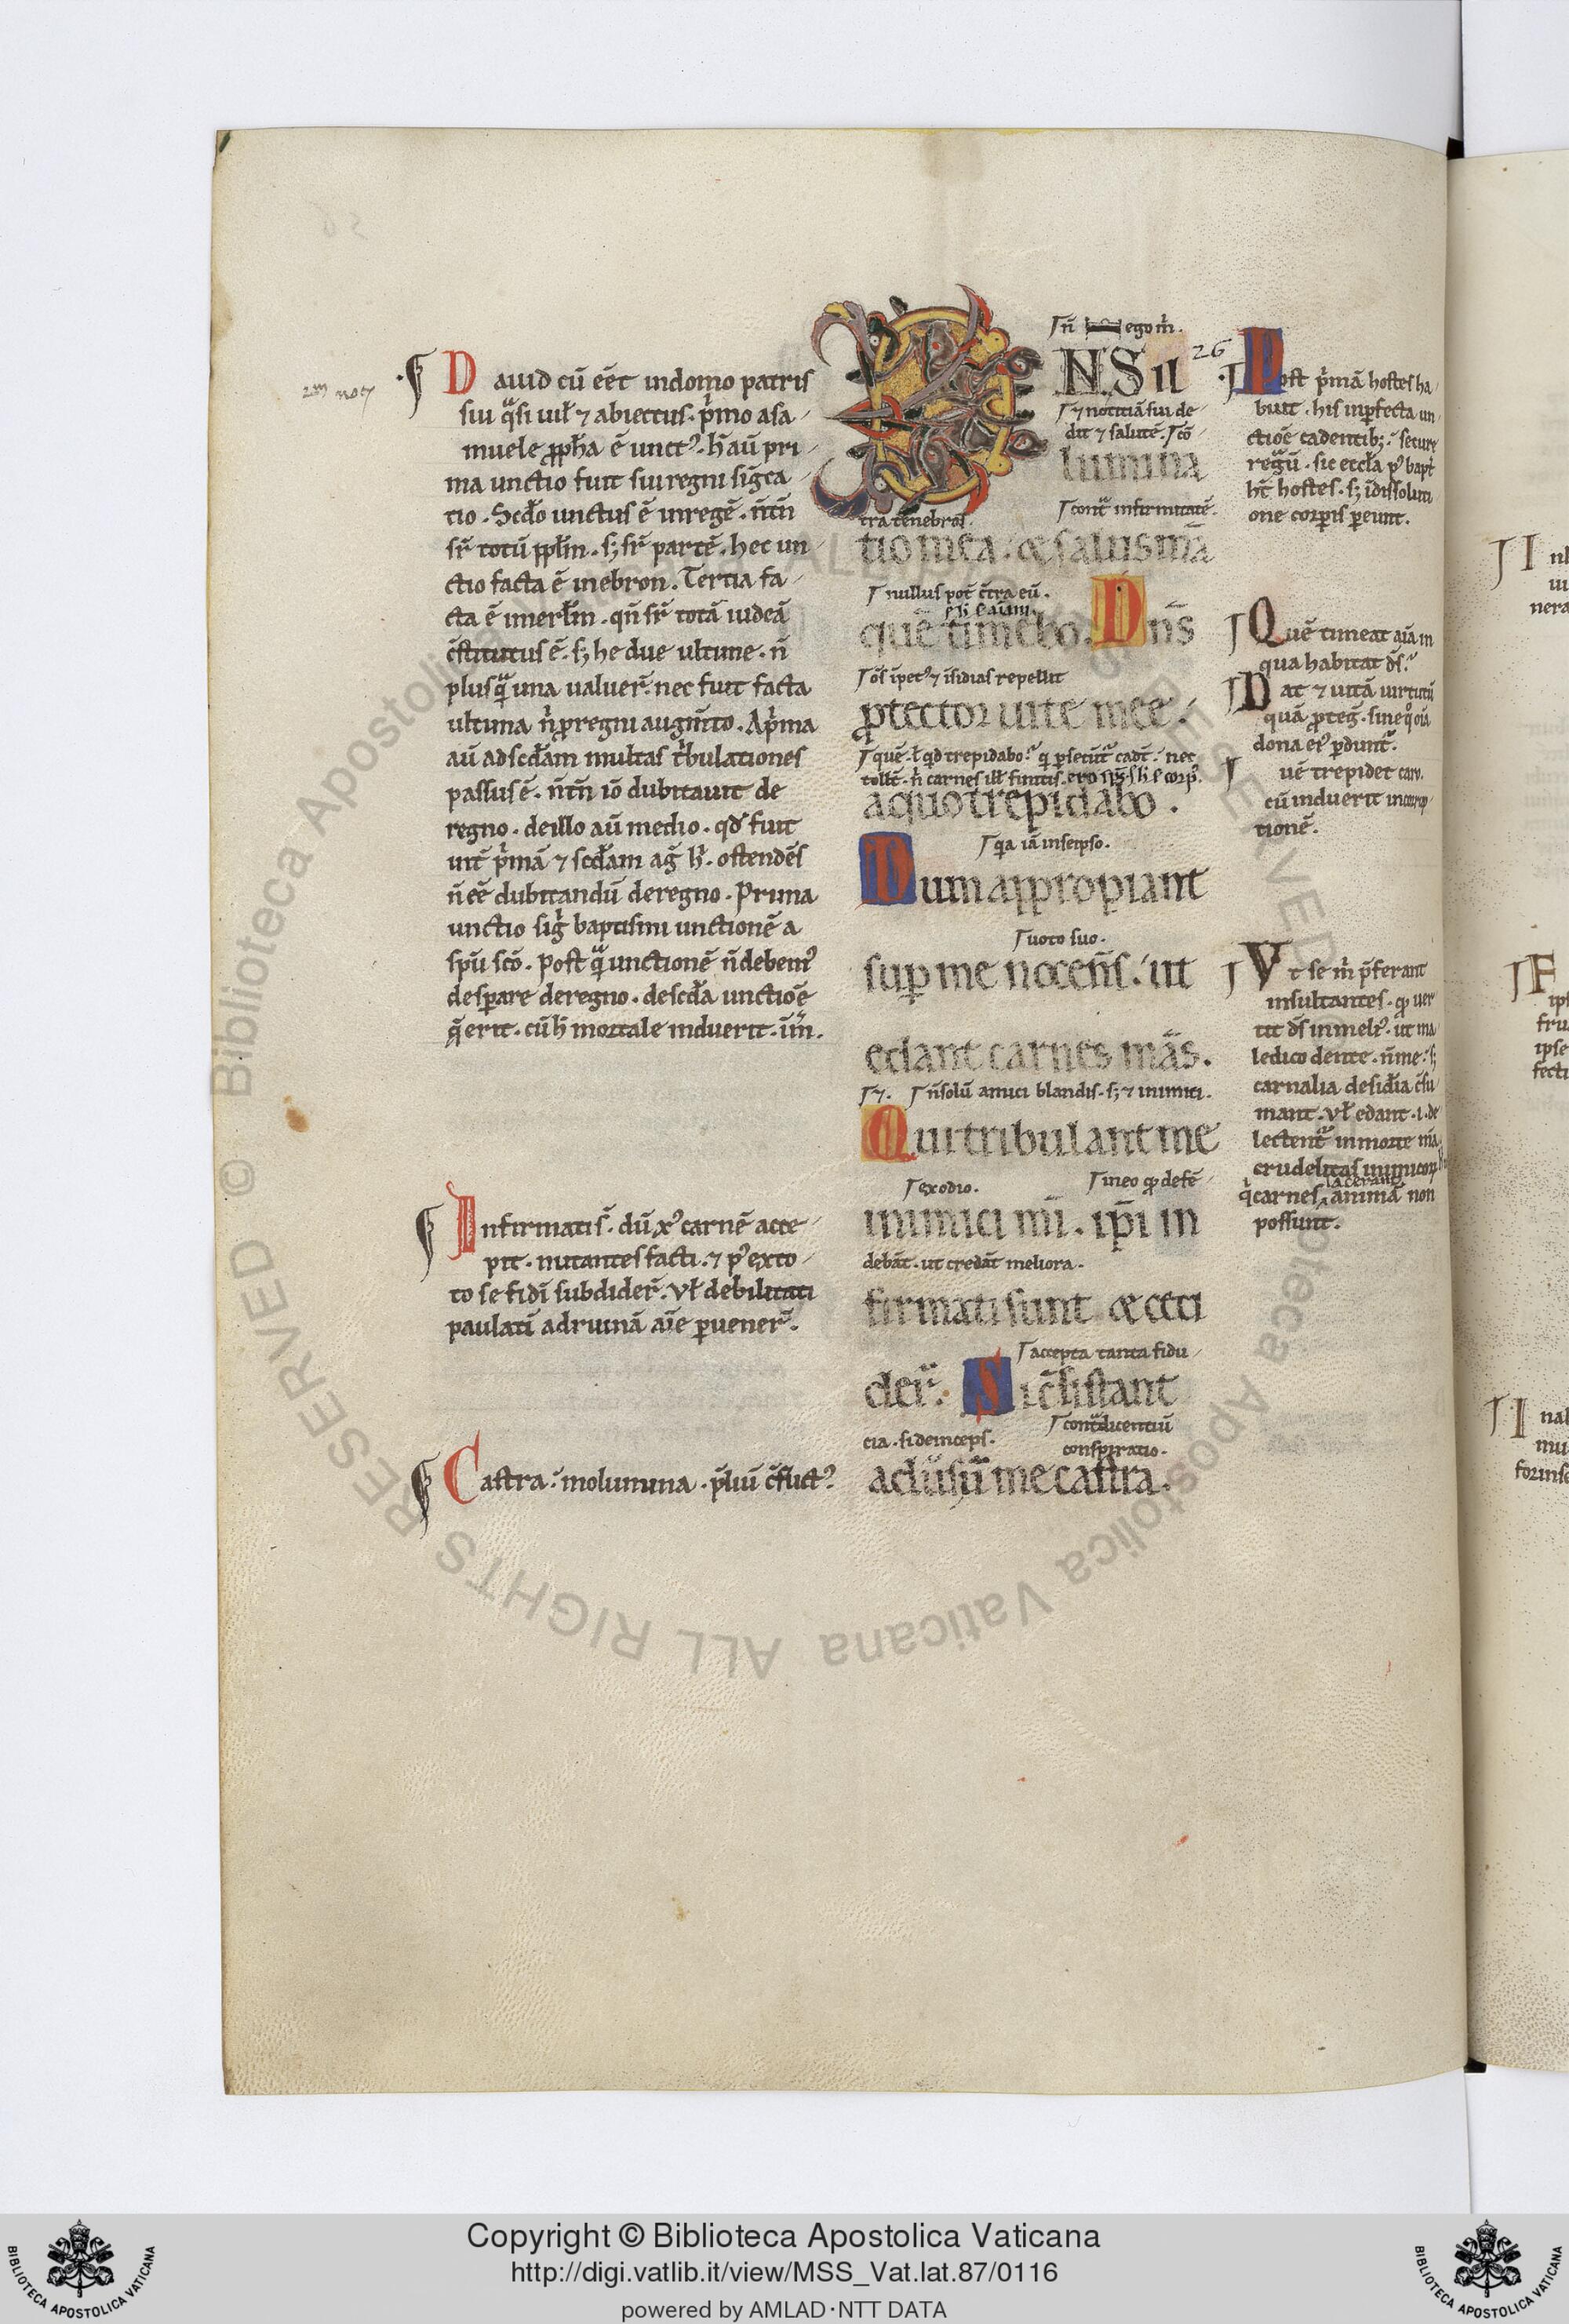 2m no7
D auid cū eēt indomo patris
sui q̄si uił ⁊ abiectus. p̄mo asa
muele ꝓpħa ē unct᾽. h̄ aū pri
ma unctio fuit sui regni siḡca
tio. Scd̄o unctus ē in regē. n̄tn̄
sr̄ totū ppl̄m. sꝫ sr̄ partē. hec un
ctio facta ē inebron. Tertia fa
cta ē inierl̄m. qn̄ sr̄ totā iudeā
c̄stitutus ē. sꝫ he due ultime. n̄
plusq̄ una ualuer̄. nec fuit facta
ultima n̄ ꝓ regni augm̄to. Ap̄ma
aū ad scd̄am multas t̄bulationes
passus ē. n̄tn̄ iō dubitauit de
regno. de illo aū medio. qđ fuit
int̄ p̄mā ⁊ scd̄am aḡ h̄. ostendēs
n̄ eē dubitandū deregno. Prima
unctio siḡ baptismi unctionē a
sp̄u scō. Post q̄ unctionē n̄ debem᾽
desꝑare deregno. de scd̄a unctiōe
q̄ erit. cū h̄ mortale induerit. im̄.
Infirmati s̄. dū x᾽ carnē acce
pit. nutantes facti. ⁊ p᾽ ex to
to se fidī subdider̄. vł debilitati
paulatī ad ruinā aīe ꝑuener̄.
Castra. molimina. p̄liū c̄fluct᾽.
n̄ ego m̄.
NS il 26
⁊ notitiā sui de
dit ⁊ salutē. cō
lumina
tra tenebras. contᵃ infirmitatē.
tio mea. & salus mā
nullus pot̄ c̄tra eū.
quē timebo. Dn̄s
oēs īpet᾽ ⁊ īsidias repellit
ꝓtector uite mee.
quē. ł qđ trepidabo. q̄ ꝑsecūtᵃ cadt̄. nec
aquo trepidabo.
qa iā in seipso.
Dum appropiant
uoto suo.
suꝑ me nocen̄s. ut
edant carnes mās.
⁊. n̄ solū amici blandis. sꝫ ⁊ inimici.
Qui tribulant me
exodio. in eo qđ defē
inimici mī. ip̄i in
debāt. ut credāt meliora.
firmati sunt & ceci
accepta tanta fidu
der̄. Si c̄sistant
cia. si deinceps. contᵃdicentiū
conspiratio.
adūsū me castra.
Post p̄mā hostes ha
buit. his inꝑfecta un
ctiōe cadentibꝫ. secure
regᵃū. sic eccl̄a p᾽ bapt̄
ht̄ hostes. sꝫ īdissoluti
one corꝑis ꝑeunt.
Quē timeat aīā in
qua habitat ds̄.
Dat ⁊ uitā uirtutū
quā ꝓteḡ. sine qᵒ oīa
dona ei᾽ ꝑduntᵃ.
uē trepidet caro.
cū induerit incorrup
tionē.
Vt se m̄ p̄ferant
insultantes. qđ uer
tit ds̄ in meli᾽. ut ma
ledico dente. n̄ me. sꝫ
carnalia desid̄ia c̄su
mant. vł edant .i. de
lectentᵃ in morte mā
crudelitas inimicoꝝ
lacerant
q̄ carnes animā non
possunt.
Copyright © Biblioteca Apostolica Vaticana
http://digi.vatlib.it/view/MSS_Vat.lat.87/0116
powered by AMLAD·NTT DATA
BIBLIOTECA APOSTOLICA VATICANA
BIBLIOTECA APOSTOLICA VATICANA
Biblioteca Apostolica Vaticana ALL RIGHTS RESERVED ©